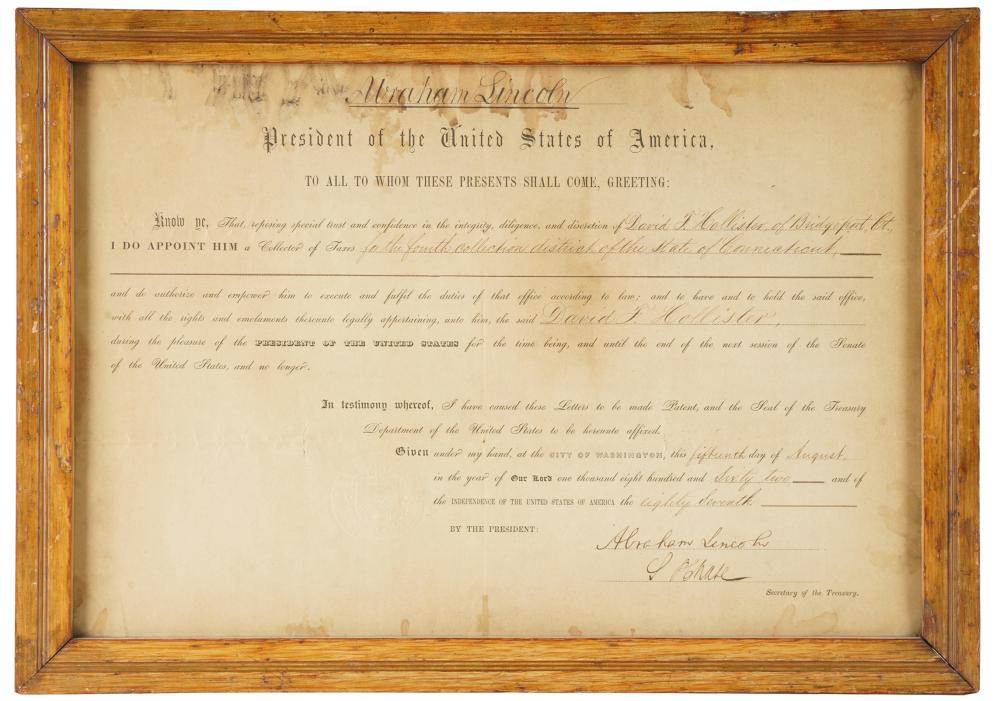 Abraham Lincoln
President of the United States of America,
TO ALL TO WHOM THESE PRESENTS SHALL COME, GREETING:
Know ye, That, reposing special trust and confidence in the integrity, diligence, and discretion of David F. Hollister, of Bridgeport, Ct.,
I DO APPOINT HIM a Collector of Taxes for the fourth collection district of the State of Connecticut,
and do authorize and empower him to execute and fulfil the duties of that office according to law; and to have and to hold the said office,
with all the rights and emoluments thereunto legally appertaining, unto him, the said David F. Hollister,
during the pleasure of the PRESIDENT OF THE UNITED STATES for the time being, and until the end of the next session of the Senate
of the United States, and no longer.
In testimony whereof, I have caused these Letters to be made Patent, and the Seal of the Treasury
Department of the United States to be hereunto affixed.
Given under my hand, at the CITY OF WASHINGTON, this fifteenth day of August
in the year of Our Lord one thousand eight hundred and Sixty two and of
the INDEPENDENCE OF THE UNITED STATES OF AMERICA the eighty Seventh
BY THE PRESIDENT:
Abraham Lincoln
S P Chase
Secretary of the Treasury.